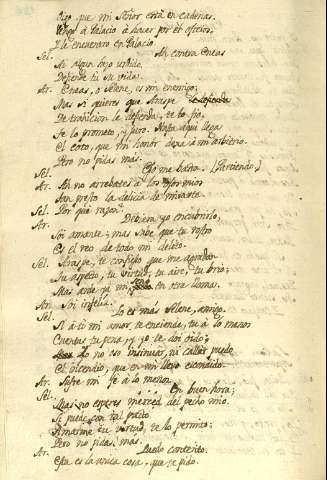 Digo que mi Señor está en cadenas.
Vengo á Palacio á
Y le encuentro en Palacio.
Sel. Ah contra Eneas
Ay algun
Defiende tu su vida.
Ar. Eneas, o Selene, es mi enemigo;
Mas si quieres que Araspe
De traicion le defienda, te lo fio,
Te lo prometo, y juro. Hasta aqui llega
El coto, que mi honor dexa á mi arbitrio.
Pero no pidas mas.
Sel. Eso me basta. (Partiendo.)
Ar. Ah no arrebates á los ojos mios
Tan presto la delicia de mirarte
Sel. Por que razon?
Ar. Debiera yo encubrirlo,
Soi amante; mas sabe que tu rostro
Es el reo de todo mi delito.
Sel. Araspe, te confieso que me agradan
Tu aspecto, tu virtud, tu aire, tu brio;
Mas arde ya mi en otra llama.
Ar. Soi infeliz.
Sel. Lo es mas Selene, amigo.
Si á ti mi amor te enciende, tu á lo menos
Cuentas tu pena, y yo te doi oido;
Yo no oso insinuar, ni callar puedo
El incendio, que en mi llevo escondido.
Ar. Sufre mi fe á lo menos.
Sel. En buen hora;
Mas no esperes merced del pecho mio.
Si puede con tal pacto
Amarme tu verdad, te lo permito;
Pero no pidas mas.
Ar. Quedo contento.
Esta es la unica cosa, que te pido.